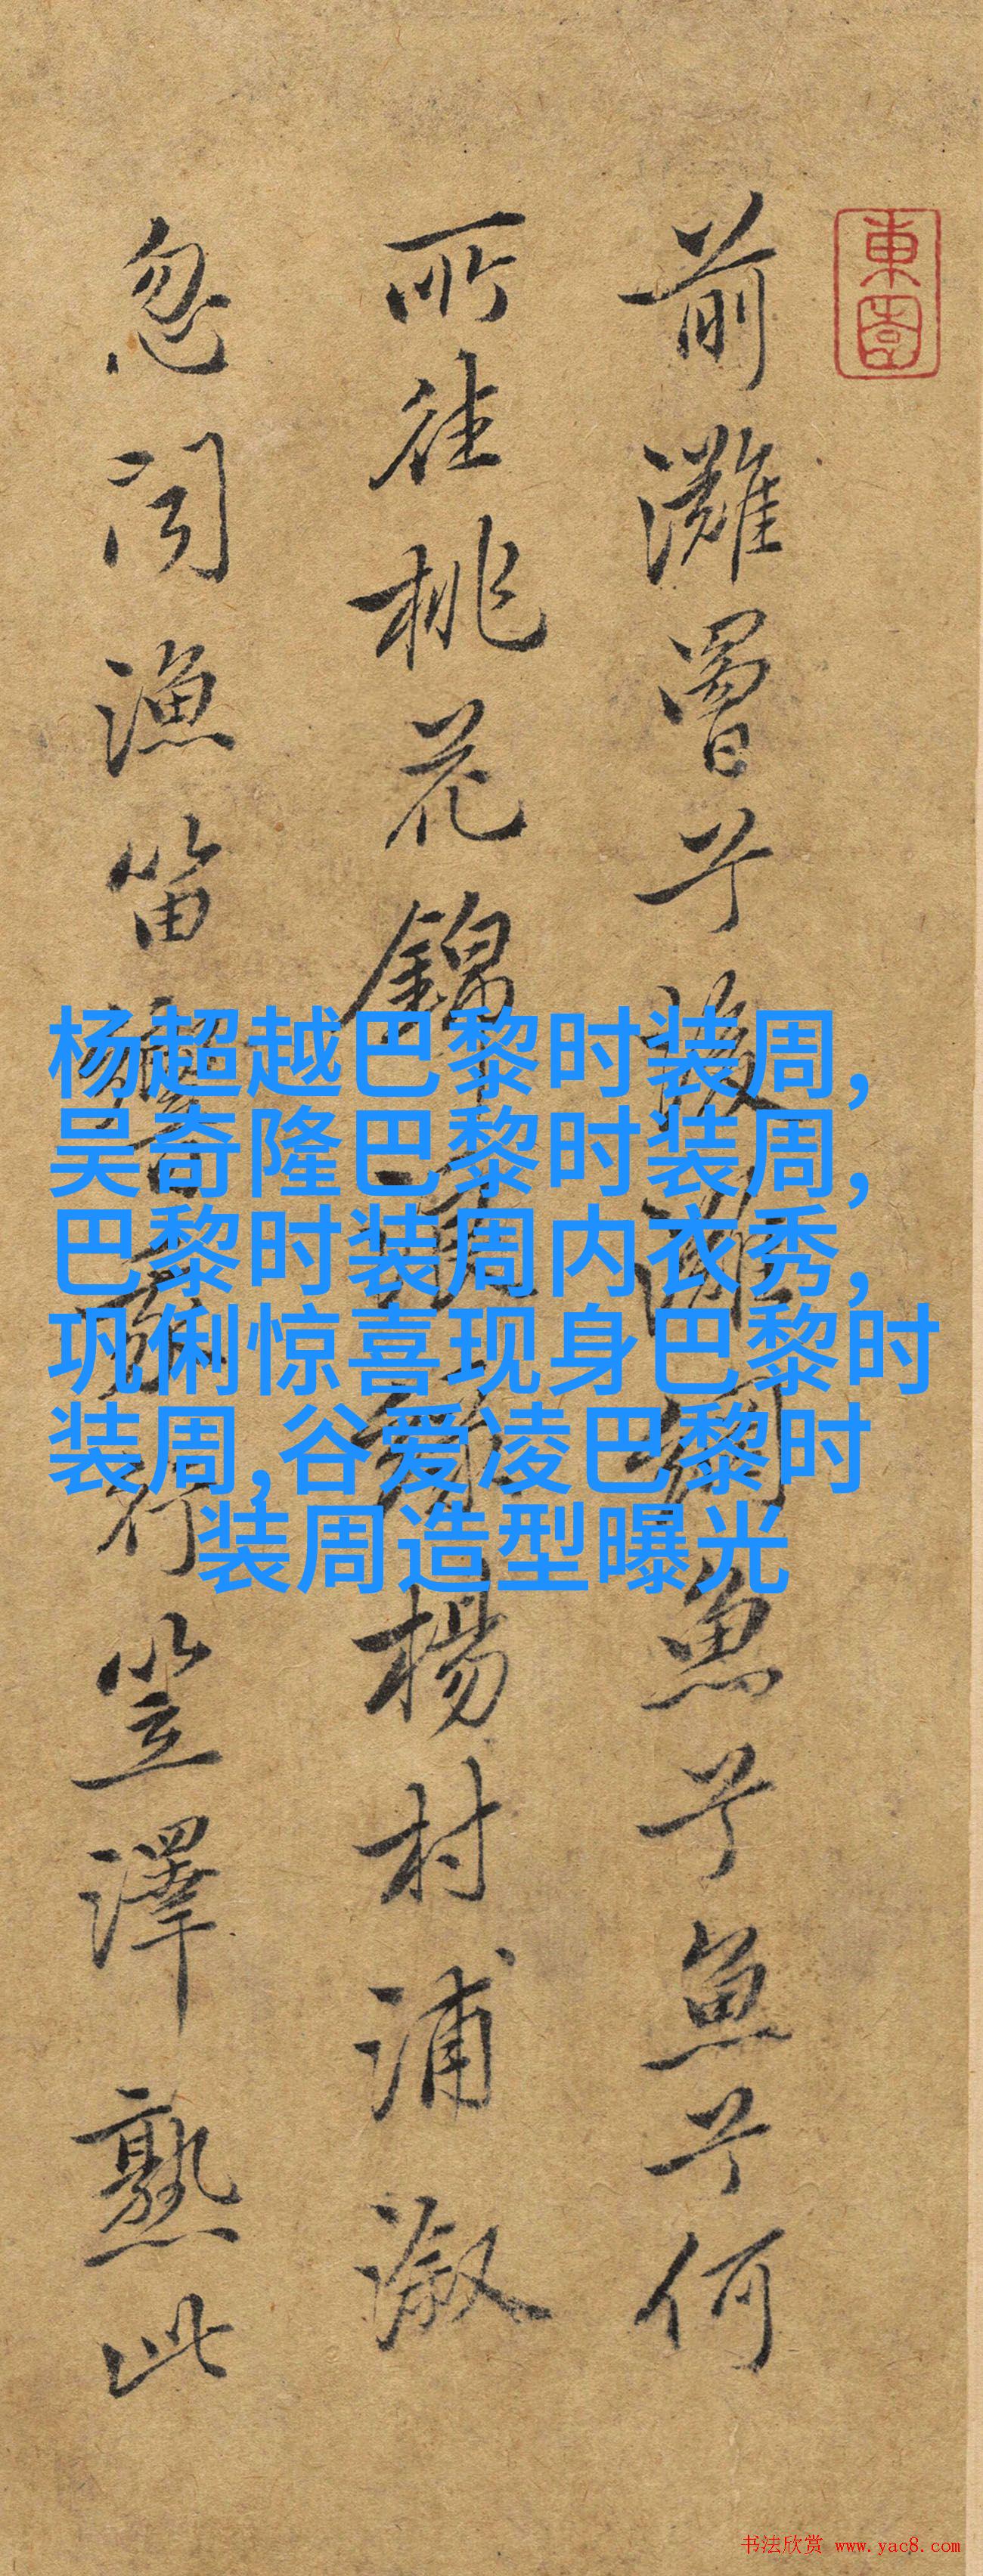 東園
前灘罾兮後灘網魚兮魚兮何
所往桃花錦楊村浦溆
忽聞漁笛響我行笠澤熟此
杨超越巴黎时装周,
吴奇隆巴黎时装周,
巴黎时装周内衣秀,
巩俐惊喜现身巴黎时
装周,谷爱凌巴黎时
装周造型曝光
书法欣赏 www.yac8.com